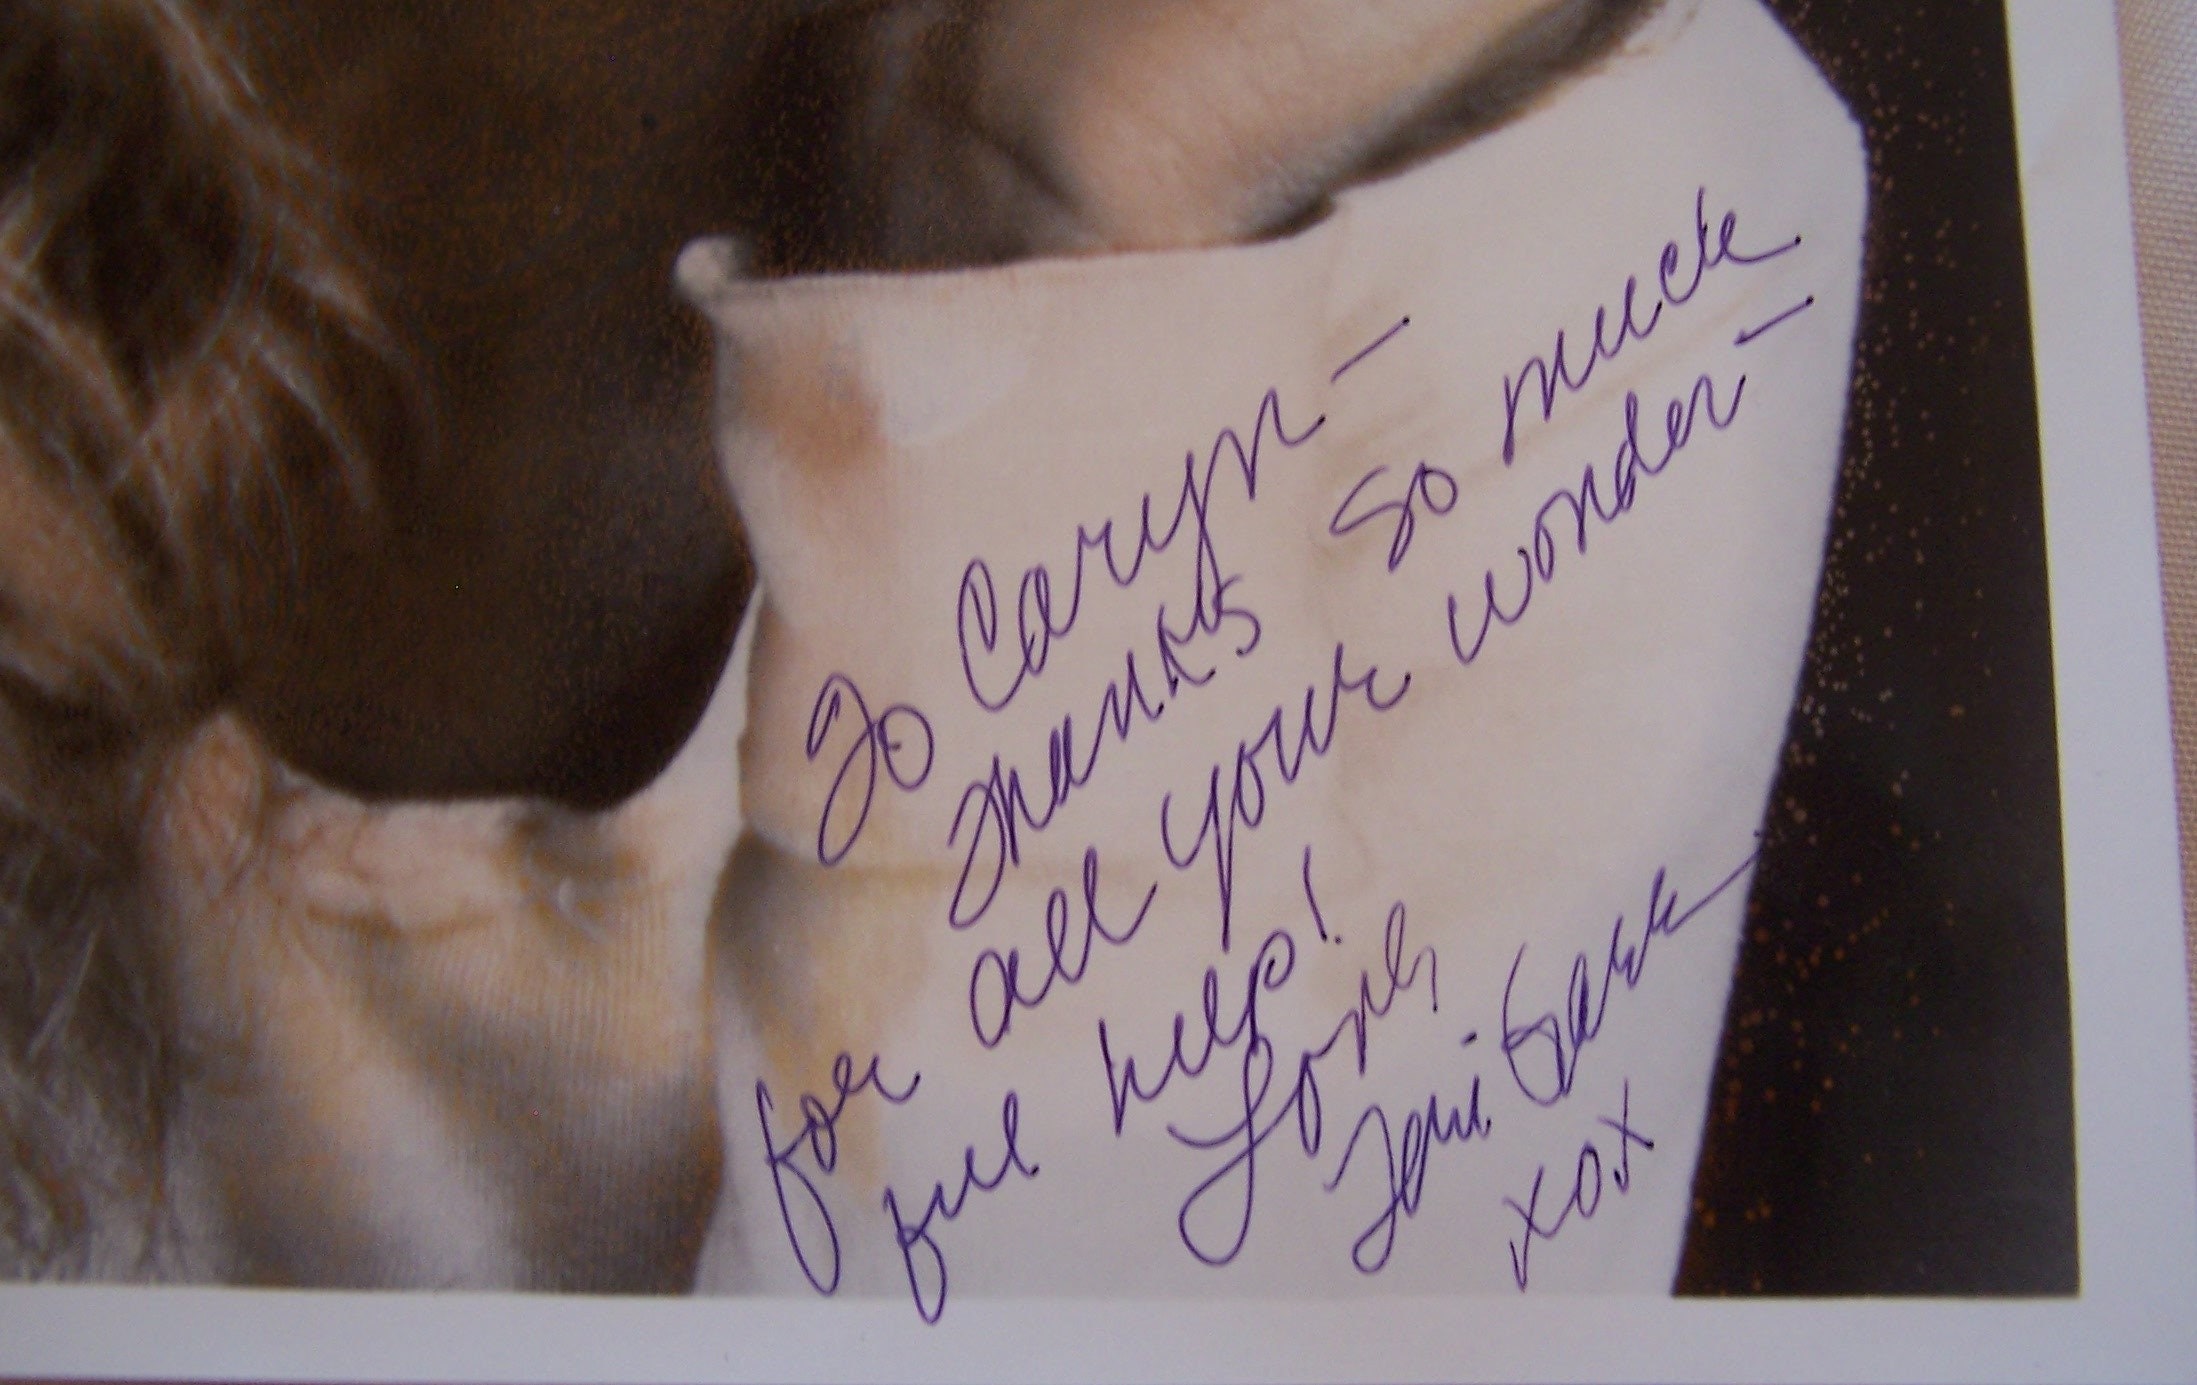 To Caryn –
Thanks so much
for all your wonder –
ful help!
Love,
Teri Garr
xox